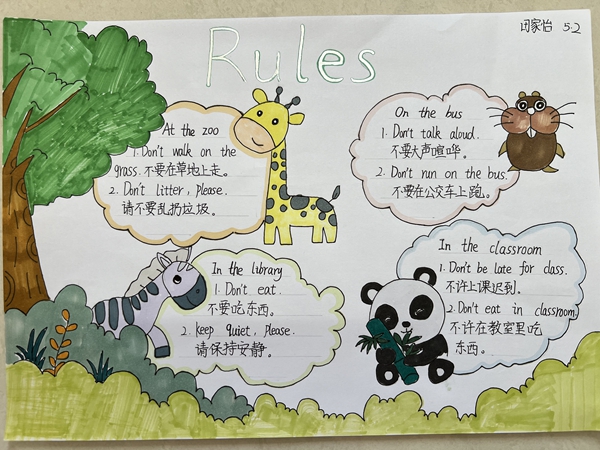 田家怡 5.2
Rules
At the zoo
1. Don't walk on the
grass. 不要在草地上走。
2. Don't litter, please.
请不要乱扔垃圾。
On the bus
1. Don't talk aloud.
不要大声喧哗。
2. Don't run on the bus.
不要在公交车上跑。
In the library
1. Don't eat.
不要吃东西。
2. keep quiet, please.
请保持安静。
In the classroom
1. Don't be late for class.
不许上课迟到。
2. Don't eat in classroom
不许在教室里吃
东西。